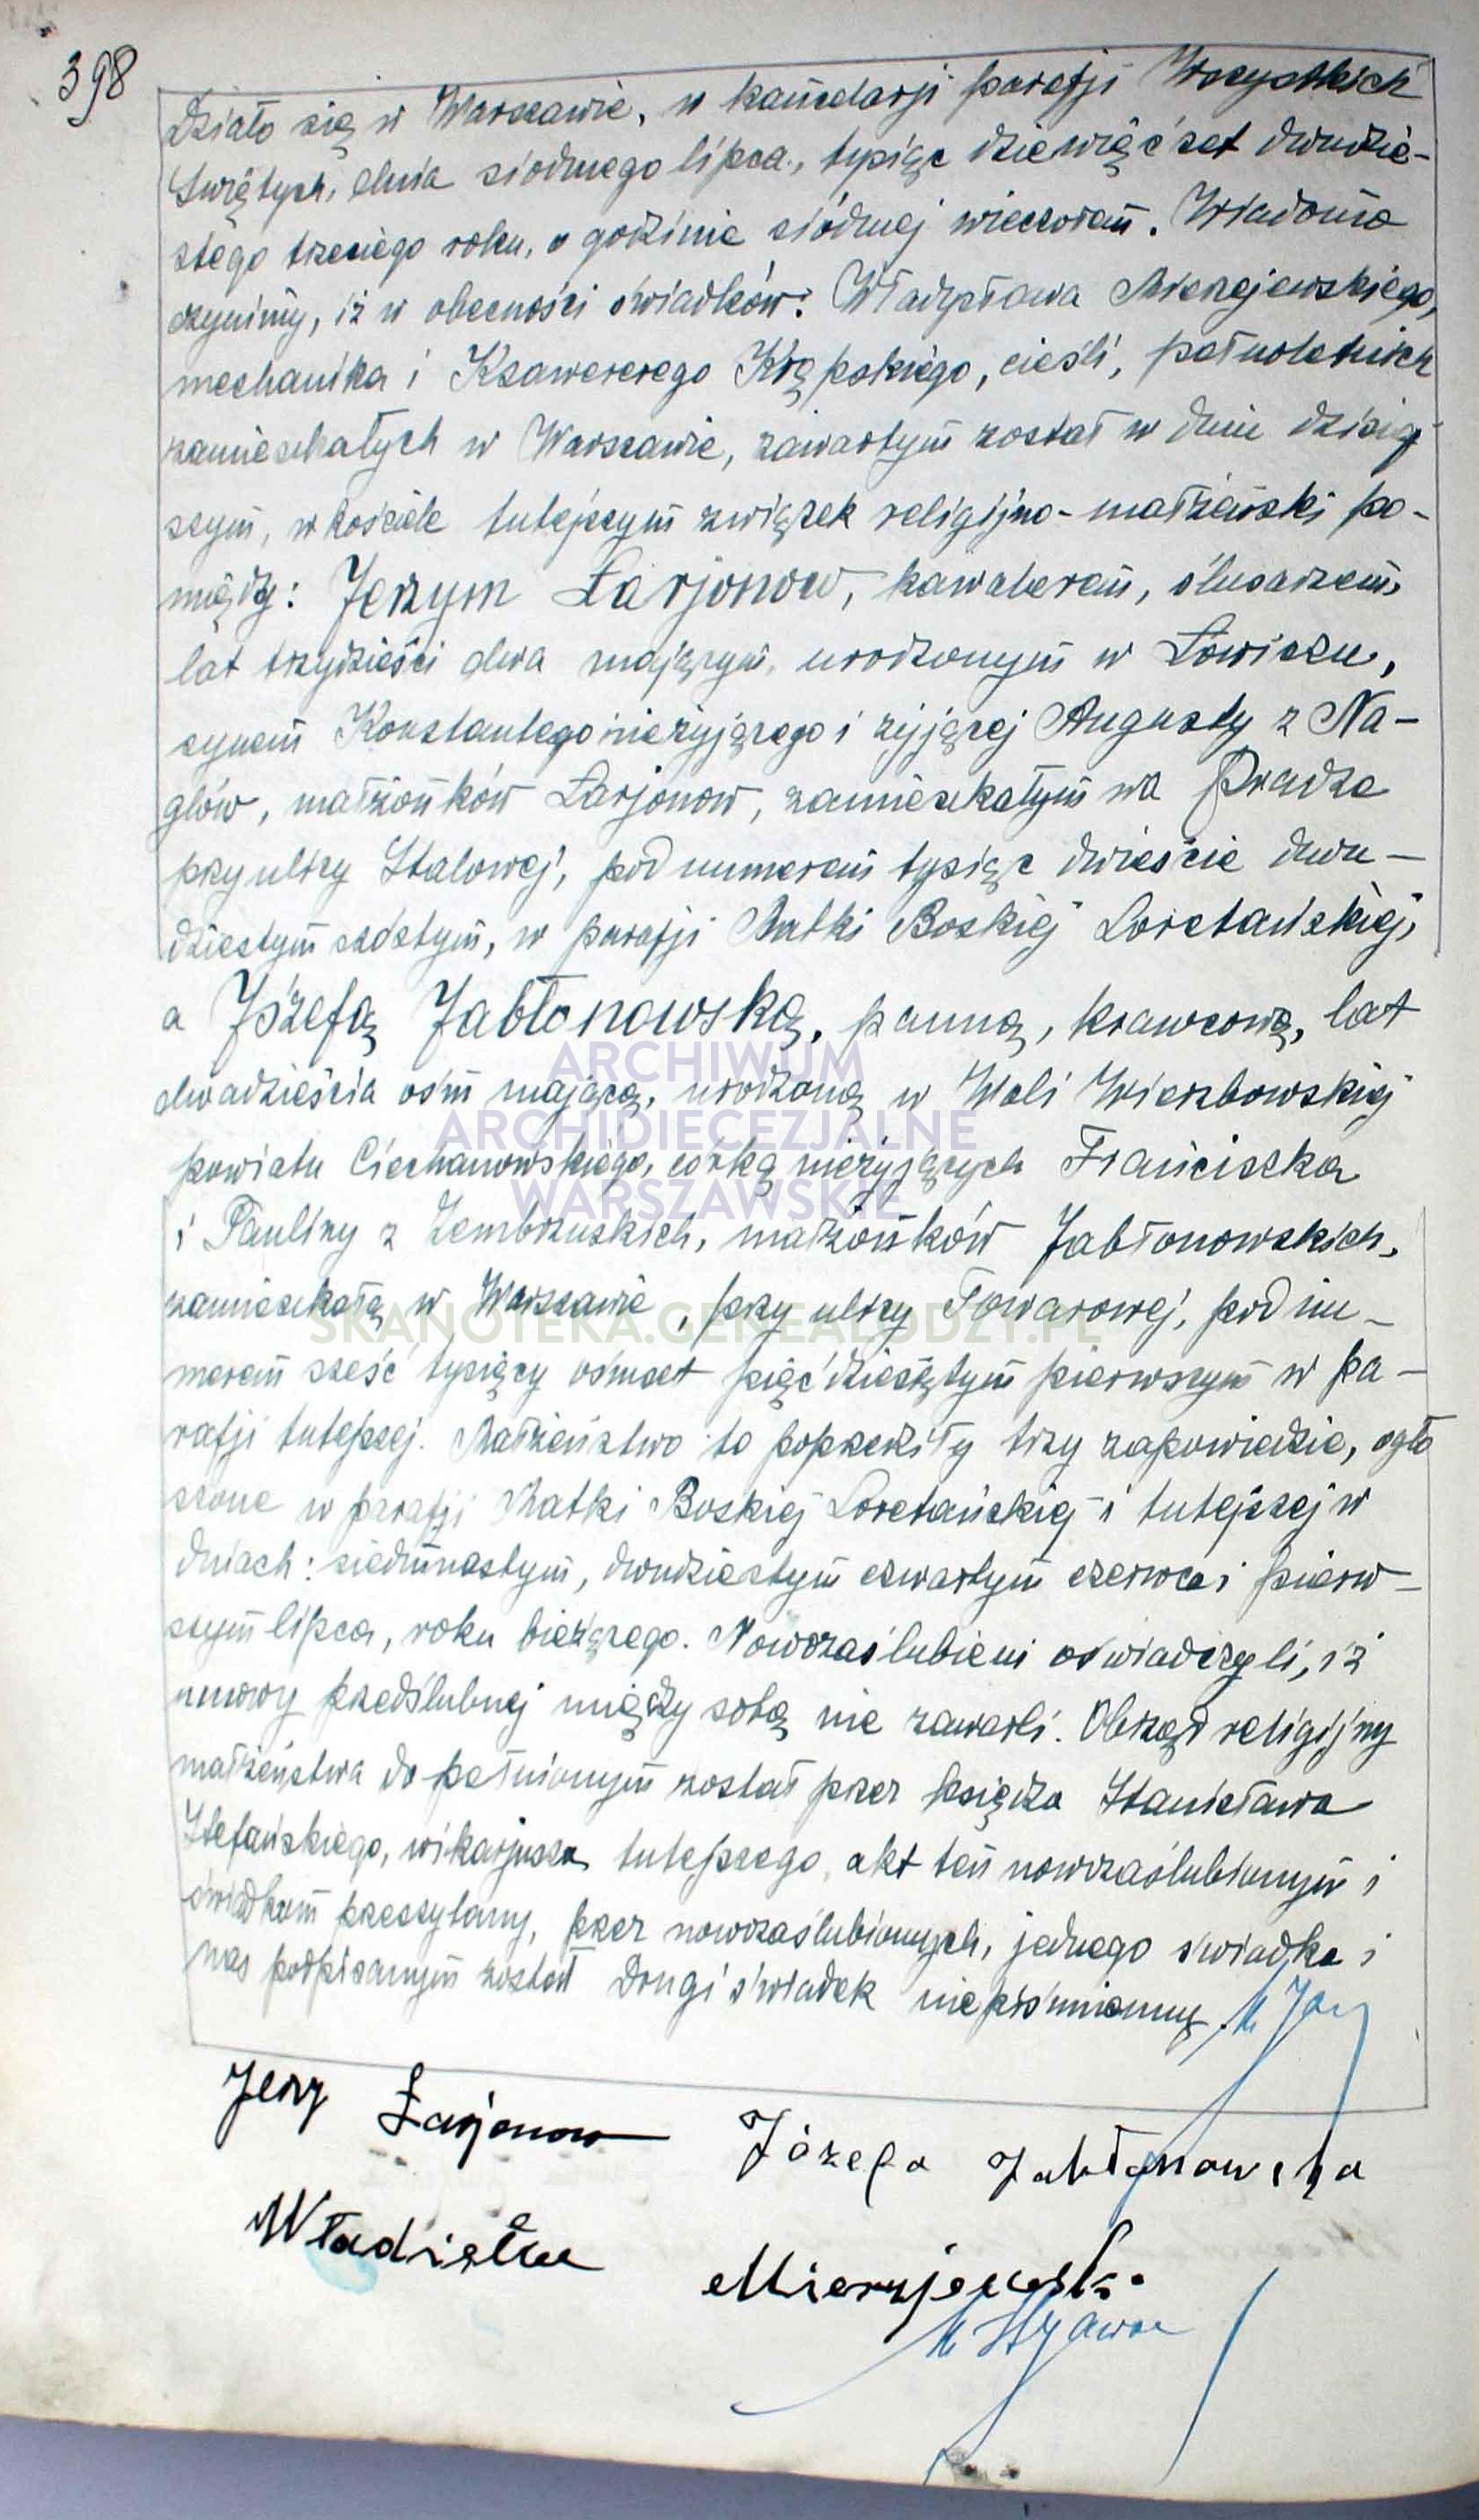 398
Działo się w Warszawie, w kancelarji parafji Wszystkich
Świętych, dnia siódmego lipca, tysiąc dziewięćset dwudzie-
stego trzeciego roku, o godzinie siódmej wieczorem. Wiadomo
czynimy, iż w obecności świadków: Władysława Mierzejewskiego,
mechanika i Ksawerego Krępskiego, cieśli, pełnoletnich
zamieszkałych w Warszawie, zawartym został w dniu dzisiej
szym, w kościele tutejszym związek religijno-małżeński po-
między: Jerzym Larjonow, kawalerem, ślusarzem,
lat trzydzieści dwa mającym, urodzonym w Łowiczu,
synem Konstantego nieżyjącego i żyjącej Augusty z Na-
glów, małżonków Larjonow, zamieszkałym na Pradze
przy ulicy Stalowej, pod numerem tysiąc dwieście dwu-
dziestym szóstym, w parafji Matki Boskiej Loretańskiej,
a Józefą Jabłonowską, panną, krawcową, lat
dwadzieścia ośm mającą, urodzoną w Woli Wierzbowskiej
powiatu Ciechanowskiego, córką nieżyjących Franciszka
i Pauliny z Zembrzuskich, małżonków Jabłonowskich,
zamieszkałą w Warszawie, przy ulicy Towarowej, pod nu-
merem sześć tysięcy ośmset pięćdziesiątym pierwszym w pa-
rafji tutejszej. Małżeństwo to poprzedziły trzy zapowiedzie, ogło
szone w parafji Matki Boskiej Loretańskiej i tutejszej w
dniach: siedmnastym, dwudziestym czwartym czerwca i pierw-
szym lipca, roku bieżącego. Nowozaślubieni oświadczyli, iż
umowy przedślubnej między sobą nie zawarli. Obrzęd religijny
małżeństwa dopełnionym został przez księdza Stanisława
Stefańskiego, wikarjusza tutejszego, akt ten nowozaślubionym i
świadkom przeczytany, przez nowozaślubionych, jednego świadka i
nas podpisanym został drugi świadek niepiśmienny.
Jerzy Larjonow Józefa Jabłonowska
Władisław Mierzejewski
ARCHIWUM
ARCHIDIECEZJALNE
WARSZAWSKIE
SKANOTEKA.GENEALODZY.PL